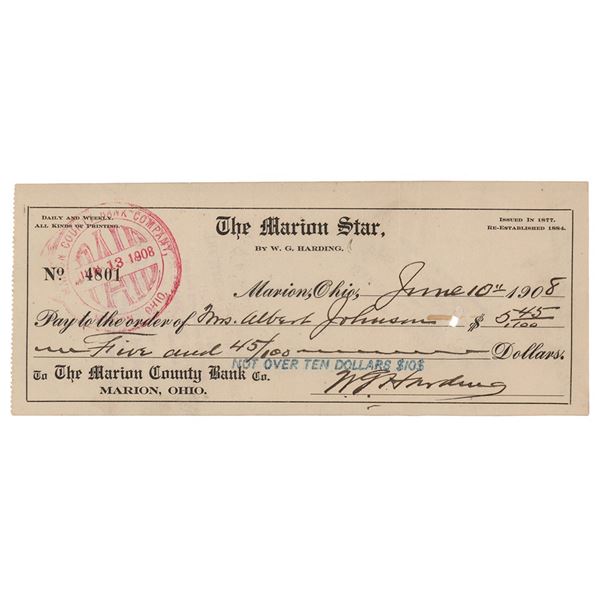 DAILY AND WEEKLY.
ALL KINDS OF PRINTING.
The Marion Star,
BY W. G. HARDING.
ISSUED IN 1877.
RE-ESTABLISHED 1884.
BANK COMPANY,
PAID
JUN 13 1908
PAID
OHIO
No 4801
Marion, Ohio, June 10" 1908
Pay to the order of Mrs. Albert Johnson $ 5 45/100
Five and 45/100 Dollars.
NOT OVER TEN DOLLARS $10$
To The Marion County Bank Co.
MARION, OHIO.
W. G. Harding